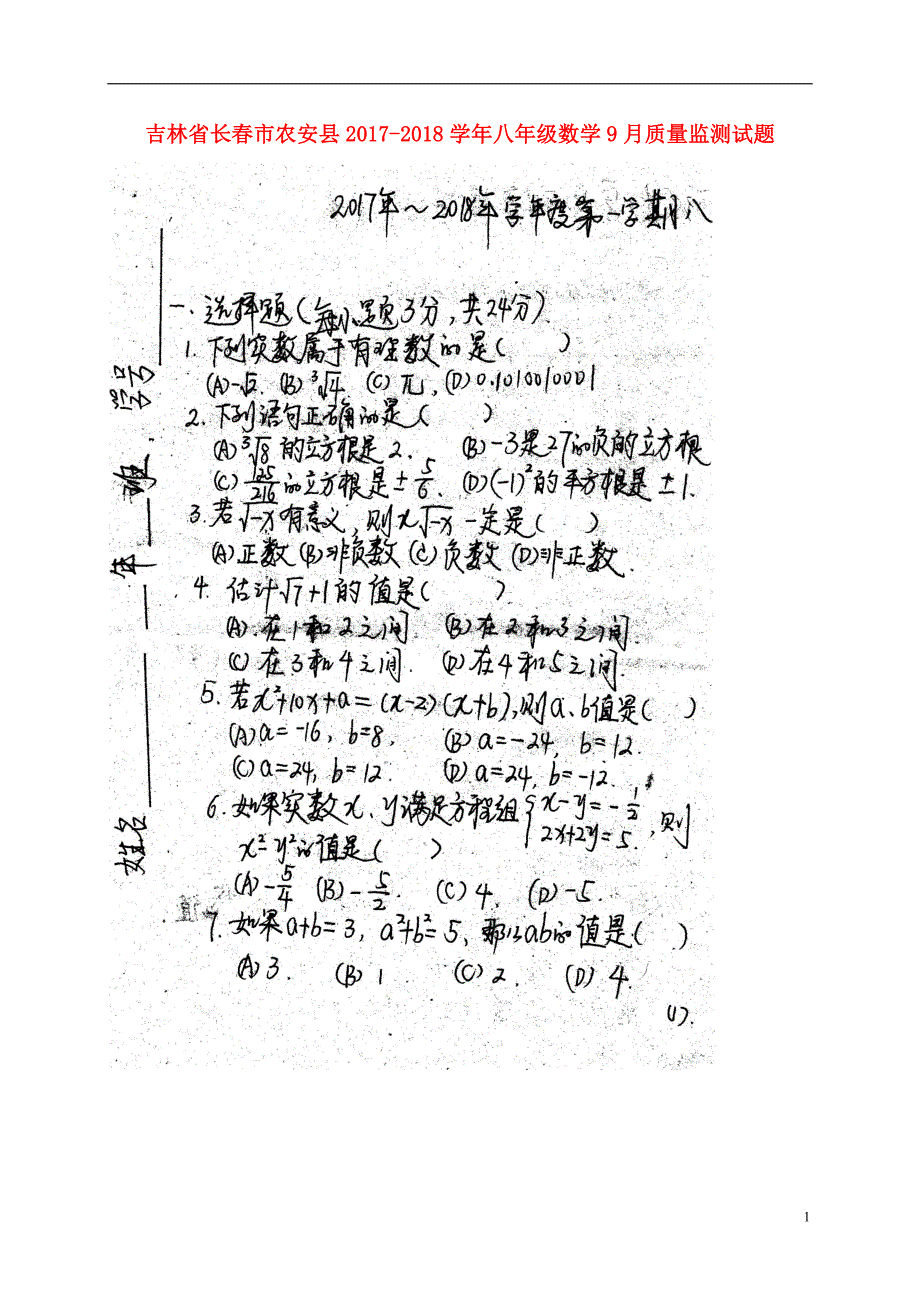 吉林省长春市农安县2017-2018学年八年级数学9月质量监测试题
2017年～2018年学年度第一学期八
一.选择题(每小题3分,共24分)
1.下列实数属于有理数的是( )
(A)-√2. (B)³√4 (C)π, (D)0.1010010001
2.下列语句正确的是( )
(A)³√8的立方根是2. (B)-3是27的负的立方根
(C)125/216的立方根是±5/6. (D)(-1)²的平方根是±1.
3.若√-x有意义,则x√-x一定是( )
(A)正数(B)非负数(C)负数(D)非正数.
4.估计√7+1的值是( )
(A).在1和2之间. (B)在2和3之间.
(C)在3和4之间. (D)在4和5之间.
5.若x²+10x+a=(x-2)(x+b),则a、b值是( )
(A)a=-16, b=8, (B)a=-24, b=12.
(C)a=24, b=12. (D)a=24, b=-12.
6.如果实数x、y满足方程组{x-y=-1/2 2x+2y=5.,则
x²-y²的值是( )
(A)-5/4 (B)-5/2. (C)4. (D)-5.
7.如果a+b=3, a²+b²=5, 那么ab的值是( )
(A)3. (B)1 (C)2. (D)4.
(1).
学号
班
年
姓名
1